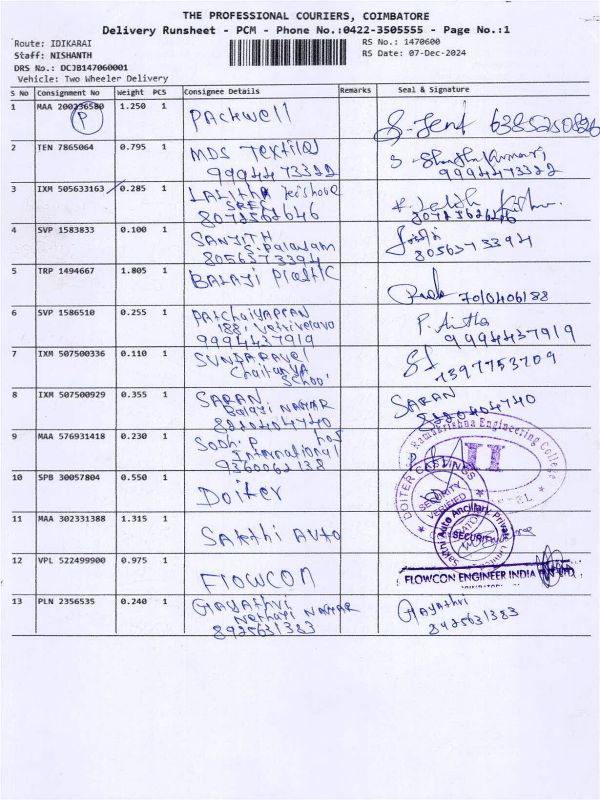 THE PROFESSIONAL COURIERS, COIMBATORE
Delivery Runsheet - PCM - Phone No.:0422-3505555 - Page No.:1
Route: IDIKARAI
RS No.: 1470600
Staff: NISHANTH
RS Date: 07-Dec-2024
DRS No.: DCJB147060001
Vehicle: Two Wheeler Delivery
S No Consignment No Weight PCS Consignee Details Remarks Seal & Signature
1 MAA 200236580 1.250 1 Packwell
P
2 TEN 7865064 0.795 1 MDS Textile
9994473322 9994473322
3 IXM 505633163 0.285 1 Lalitha Kishore
SREC
8072562646
4 SVP 1583833 0.100 1 SANJITH
8056373394 8056373394
5 TRP 1494667 1.805 1 BALAJI Plastic
7010406188
6 SVP 1586510 0.255 1 P. Anitha
188, Vetrivelava
9994437919 9994437919
7 IXM 507500336 0.110 1 SUNDARAVEL
Chaitanya
School
7397753709
8 IXM 507500929 0.355 1 SARAN SARAN
Balaji NAGAR
8220404740 8220404740
9 MAA 576931418 0.230 1 Sodhi P
International
9360062138
Ramakrishna Engineering College
II
10 SPB 30057804 0.550 1 Doiter
DOITER CASTINGS
SECURITY
VERIFIED
11 MAA 302331388 1.315 1 Sakthi AUTO
Sakthi Auto Ancillary Private
SECURITY
12 VPL 522499900 0.975 1 FLOWCON
FLOWCON ENGINEER INDIA
13 PLN 2356535 0.240 1 GAYATHRI Gayathri
Nethaji NAGAR
8925631383 8925631383